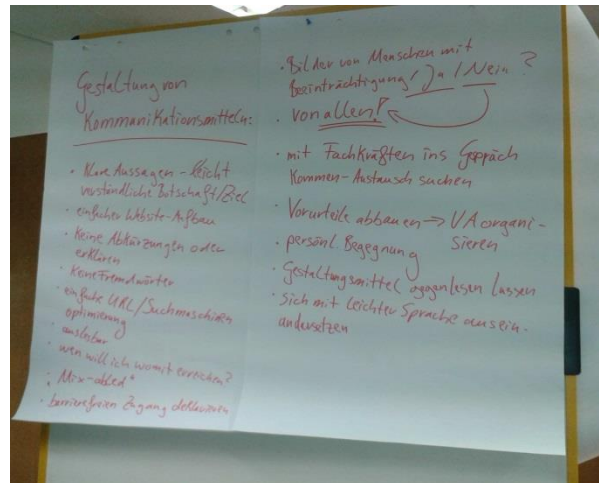 Gestaltung von
Kommunikationsmitteln:
• Klare Aussagen - leicht
verständliche Botschaft/Ziel
• einfacher Website-Aufbau
• Keine Abkürzungen oder
erklären
• Keine Fremdwörter
• einfache URL/Suchmaschinen
optimierung
• auslesbar
• wen will ich womit erreichen?
• "Mix-abled"
• barrierefreien Zugang deklarieren
• Bilder von Menschen mit
Beeinträchtigung / Ja / Nein ?
• von allen!
• mit Fachkräften ins Gespräch
Kommen - Austausch suchen
• Vorurteile abbauen → VA organi-
sieren
• persönl. Begegnung
• Gestaltungsmittel gegenlesen lassen
• Sich mit leichter Sprache ausein-
andersetzen